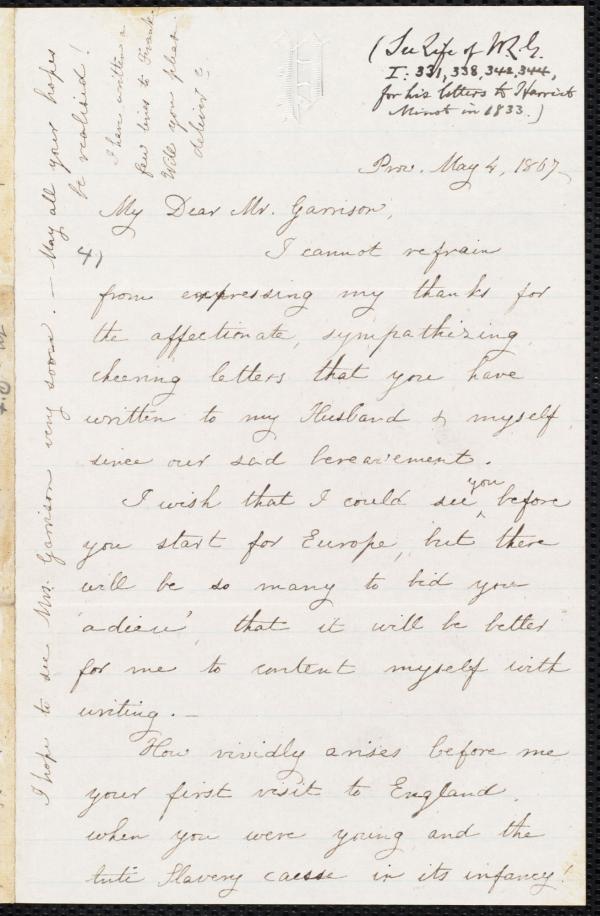 (See Life of W.L.G.
I: 331, 338, 342, 344,
for his letters to Harriet
Minot in 1833.)
Prov. May 4, 1867
My Dear Mr. Garrison,
I cannot refrain
from expressing my thanks for
the affectionate, sympathizing,
cheering letters that you have
written to my Husband & myself
since our sad bereavement.
I wish that I could see you before
you start for Europe, but there
will be so many to bid you
'adieu', that it will be better
for me to content myself with
writing. —
How vividly arises before me
your first visit to England,
when you were young and the
Anti Slavery cause in its infancy!
4)
I hope to see Mrs. Garrison very soon. — May all your hopes
be realised!
I have written a
few lines to Frank.
Will you please
deliver